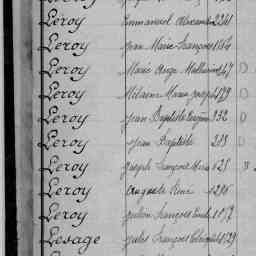 Leroy Emmanuel Alexandre 2241
Leroy Jean Marie François 1814
Leroy Marie Ange Mathurin 147 D
Leroy Mélanie Marie Joseph 179 D
Leroy Jean Baptiste Eugène 232 D
Leroy Jean Baptiste 213 D
Leroy Joseph François Marie 125
Leroy Auguste René 1216
Leroy Julien François Emile 1197
Lesage Jules François 1129